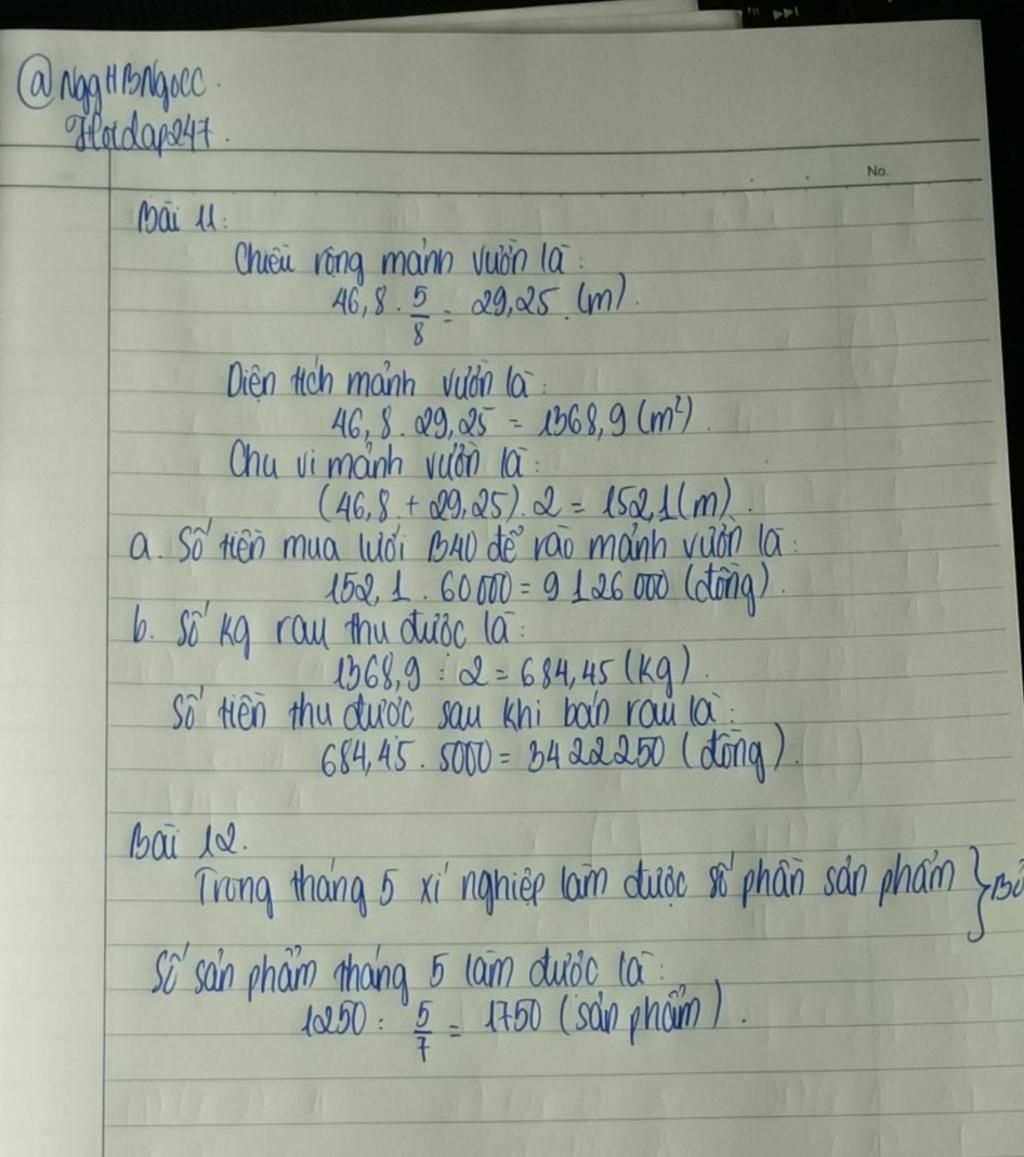 @NggHBNgocc.
Hoidap247.
No.
Bài 11:
Chiều rộng mảnh vườn là:
46,8 . 5/8 = 29,25 (m).
Diện tích mảnh vườn là:
46,8 . 29,25 = 1368,9 (m²).
Chu vi mảnh vườn là:
(46,8 + 29,25) . 2 = 152,1 (m).
a. Số tiền mua lưới B40 để rào mảnh vườn là:
152,1 . 60 000 = 9 126 000 (đồng).
b. Số kg rau thu được là:
1368,9 : 2 = 684,45 (kg).
Số tiền thu được sau khi bán rau là:
684,45 . 5000 = 3422250 (đồng).
Bài 12.
Trong tháng 5 xí nghiệp làm được số phần sản phẩm }
Số sản phẩm tháng 5 làm được là:
1250 : 5/7 = 1750 (sản phẩm).